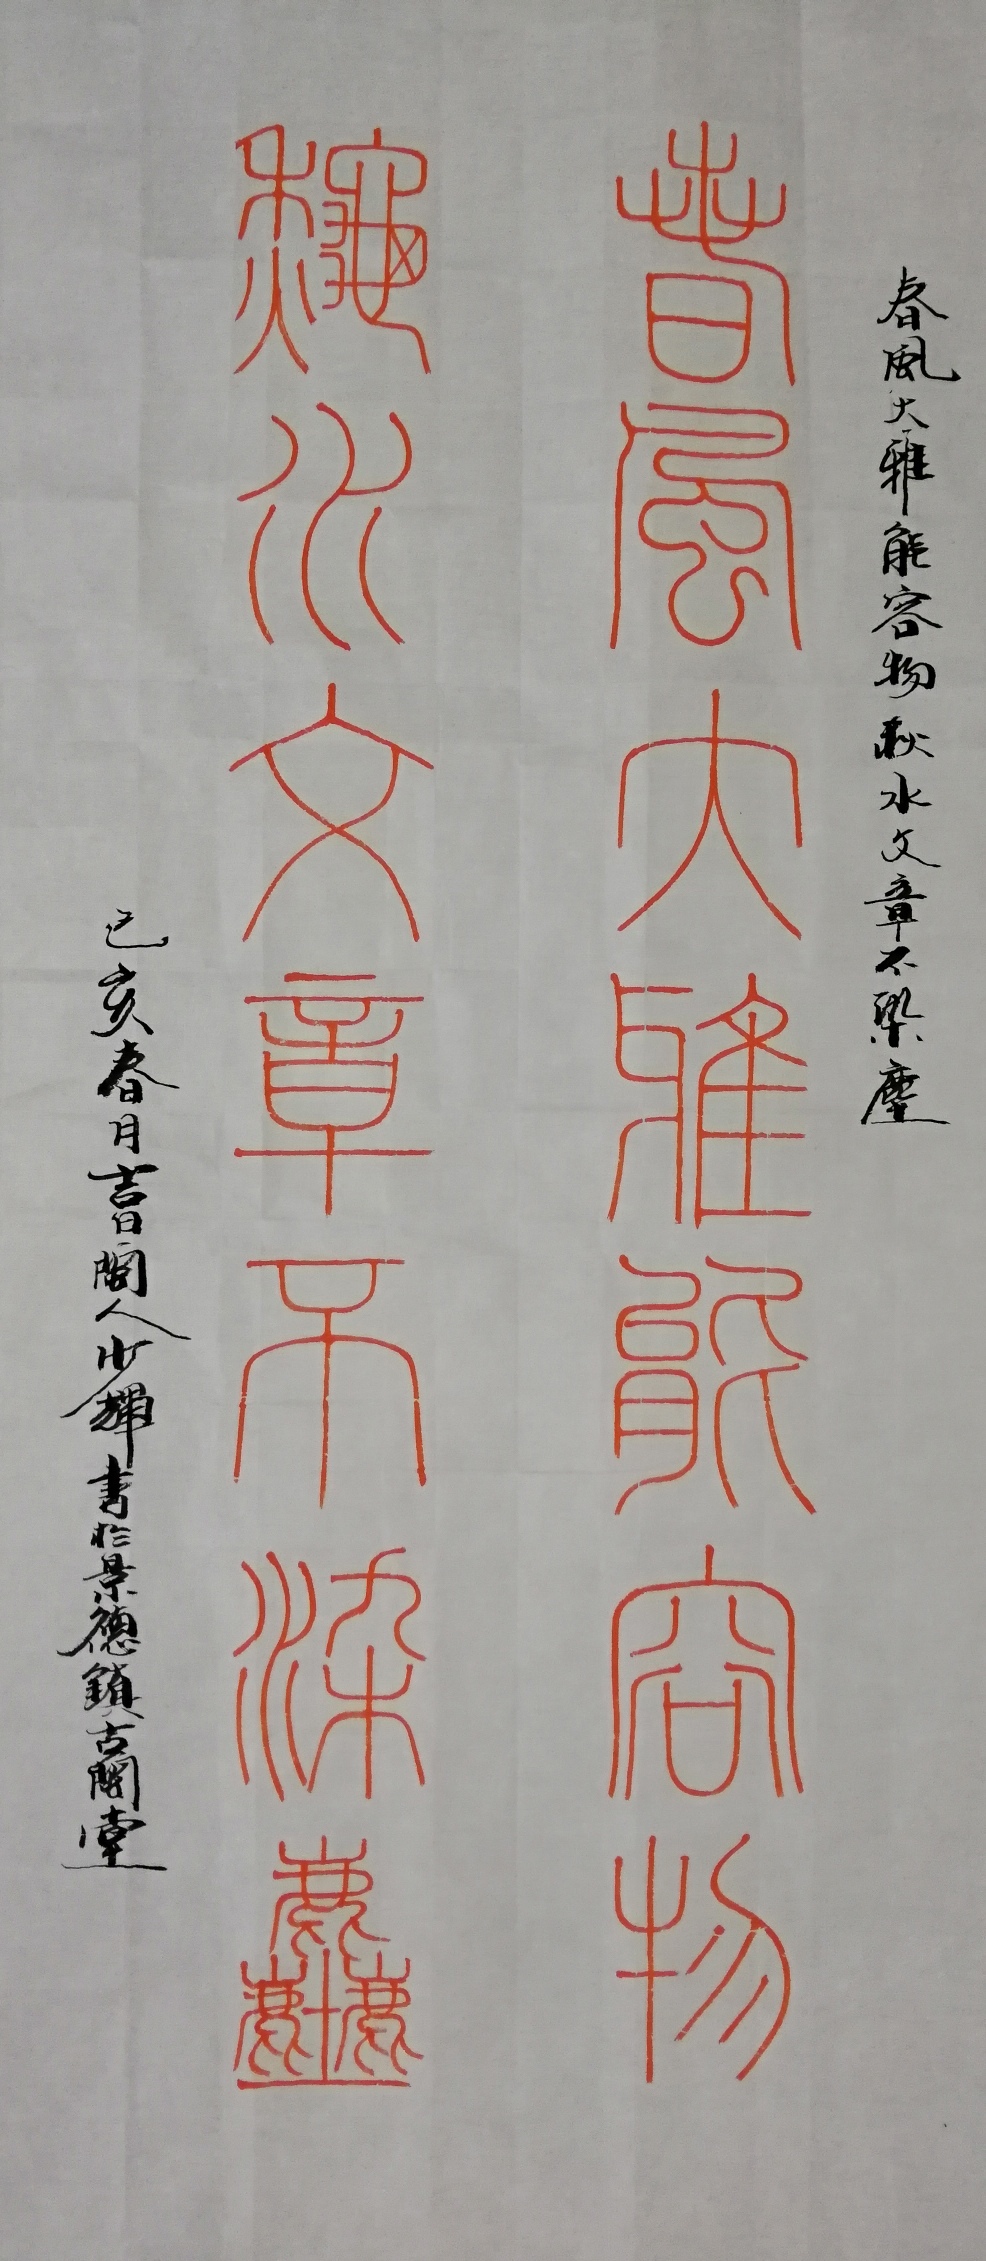 春風大雅能容物秋水文章不染塵
春風大雅能容物
秋水文章不染塵
己亥春月吉日閩人少輝書於景德鎮古閩堂